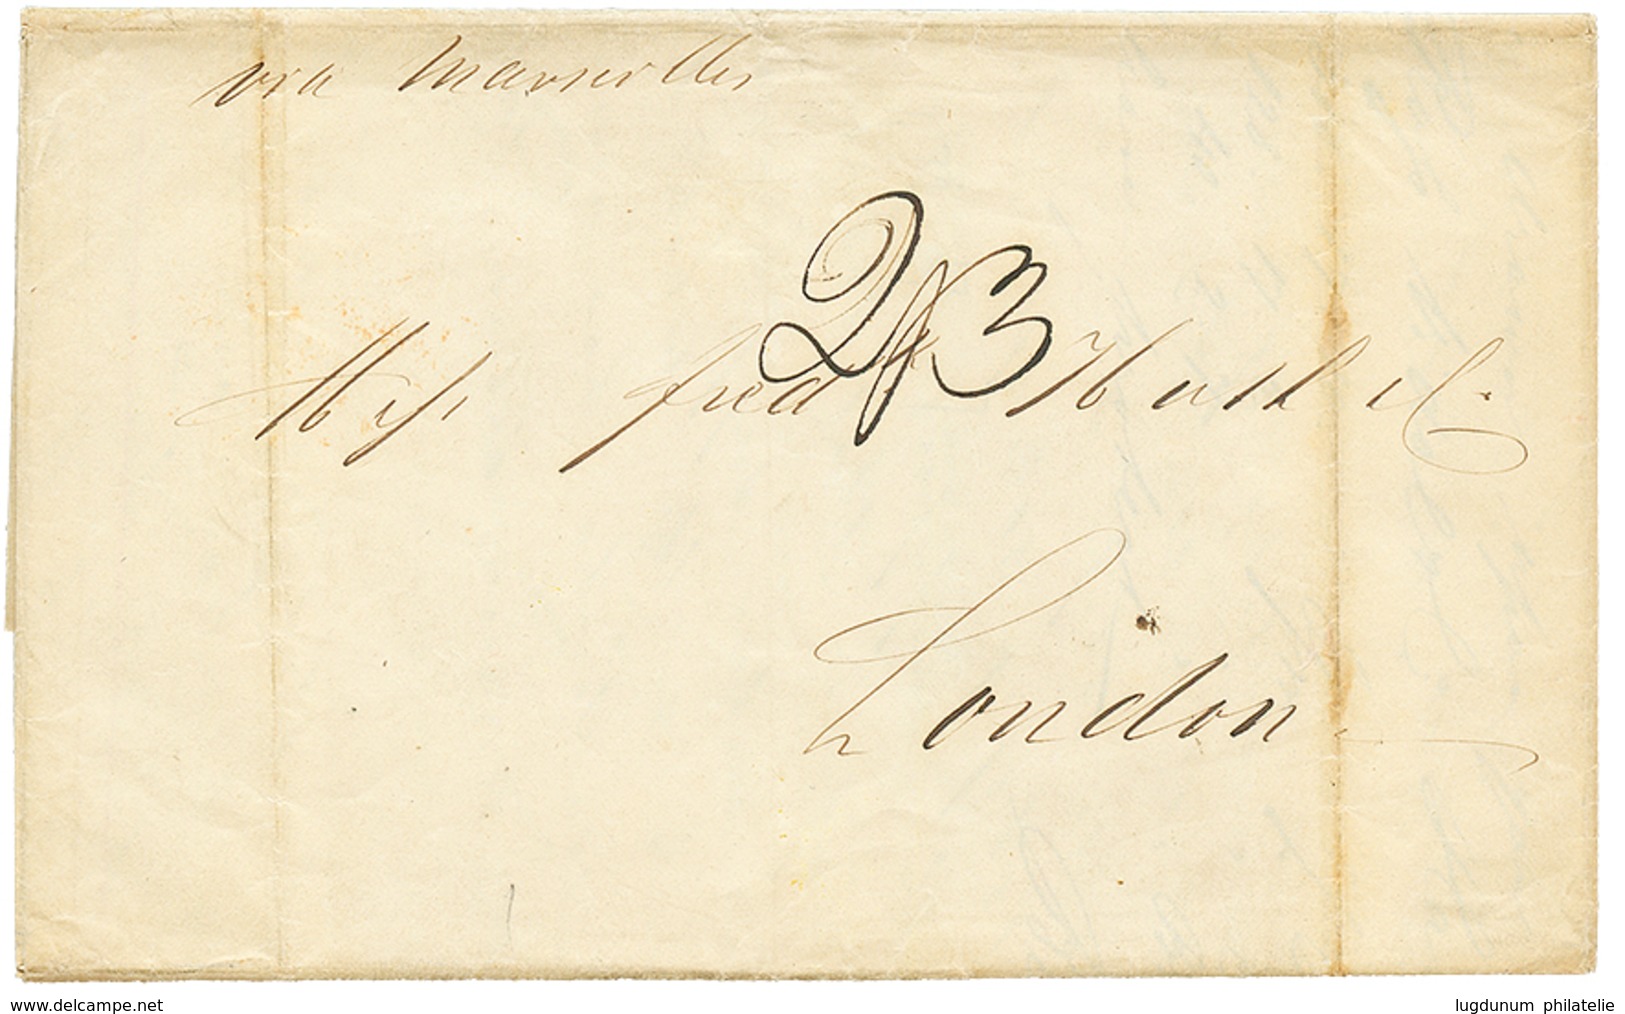 via Marseilles
2/3
Messrs fred Huth & C.
London
www.delcampe.net
lugdunum philatelie